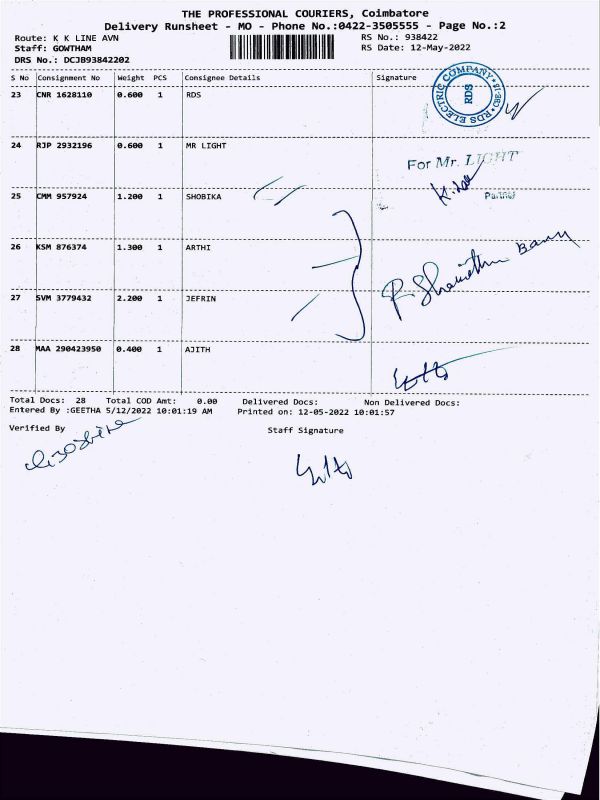 THE PROFESSIONAL COURIERS, Coimbatore
Delivery Runsheet - MO - Phone No.:0422-3505555 - Page No.:2
Route: K K LINE AVN RS No.: 938422
Staff: GOWTHAM RS Date: 12-May-2022
DRS No.: DCJB93842202
S No Consignment No Weight PCS Consignee Details Signature
23 CNR 1628110 0.600 1 RDS
RDS ELECTRIC COMPANY RDS
24 RJP 2932196 0.600 1 MR LIGHT
For Mr. LIGHT
Partner
25 CMM 957924 1.200 1 SHOBIKA
26 KSM 876374 1.300 1 ARTHI
27 SVM 3779432 2.200 1 JEFRIN
28 MAA 290423950 0.400 1 AJITH
Total Docs: 28 Total COD Amt: 0.00 Delivered Docs: Non Delivered Docs:
Entered By :GEETHA 5/12/2022 10:01:19 AM Printed on: 12-05-2022 10:01:57
Verified By Staff Signature